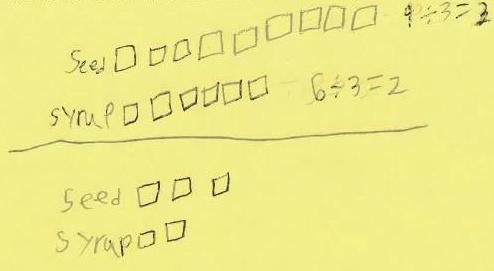 Seed 9÷3=3
Syrup 6÷3=2
Seed
Syrup